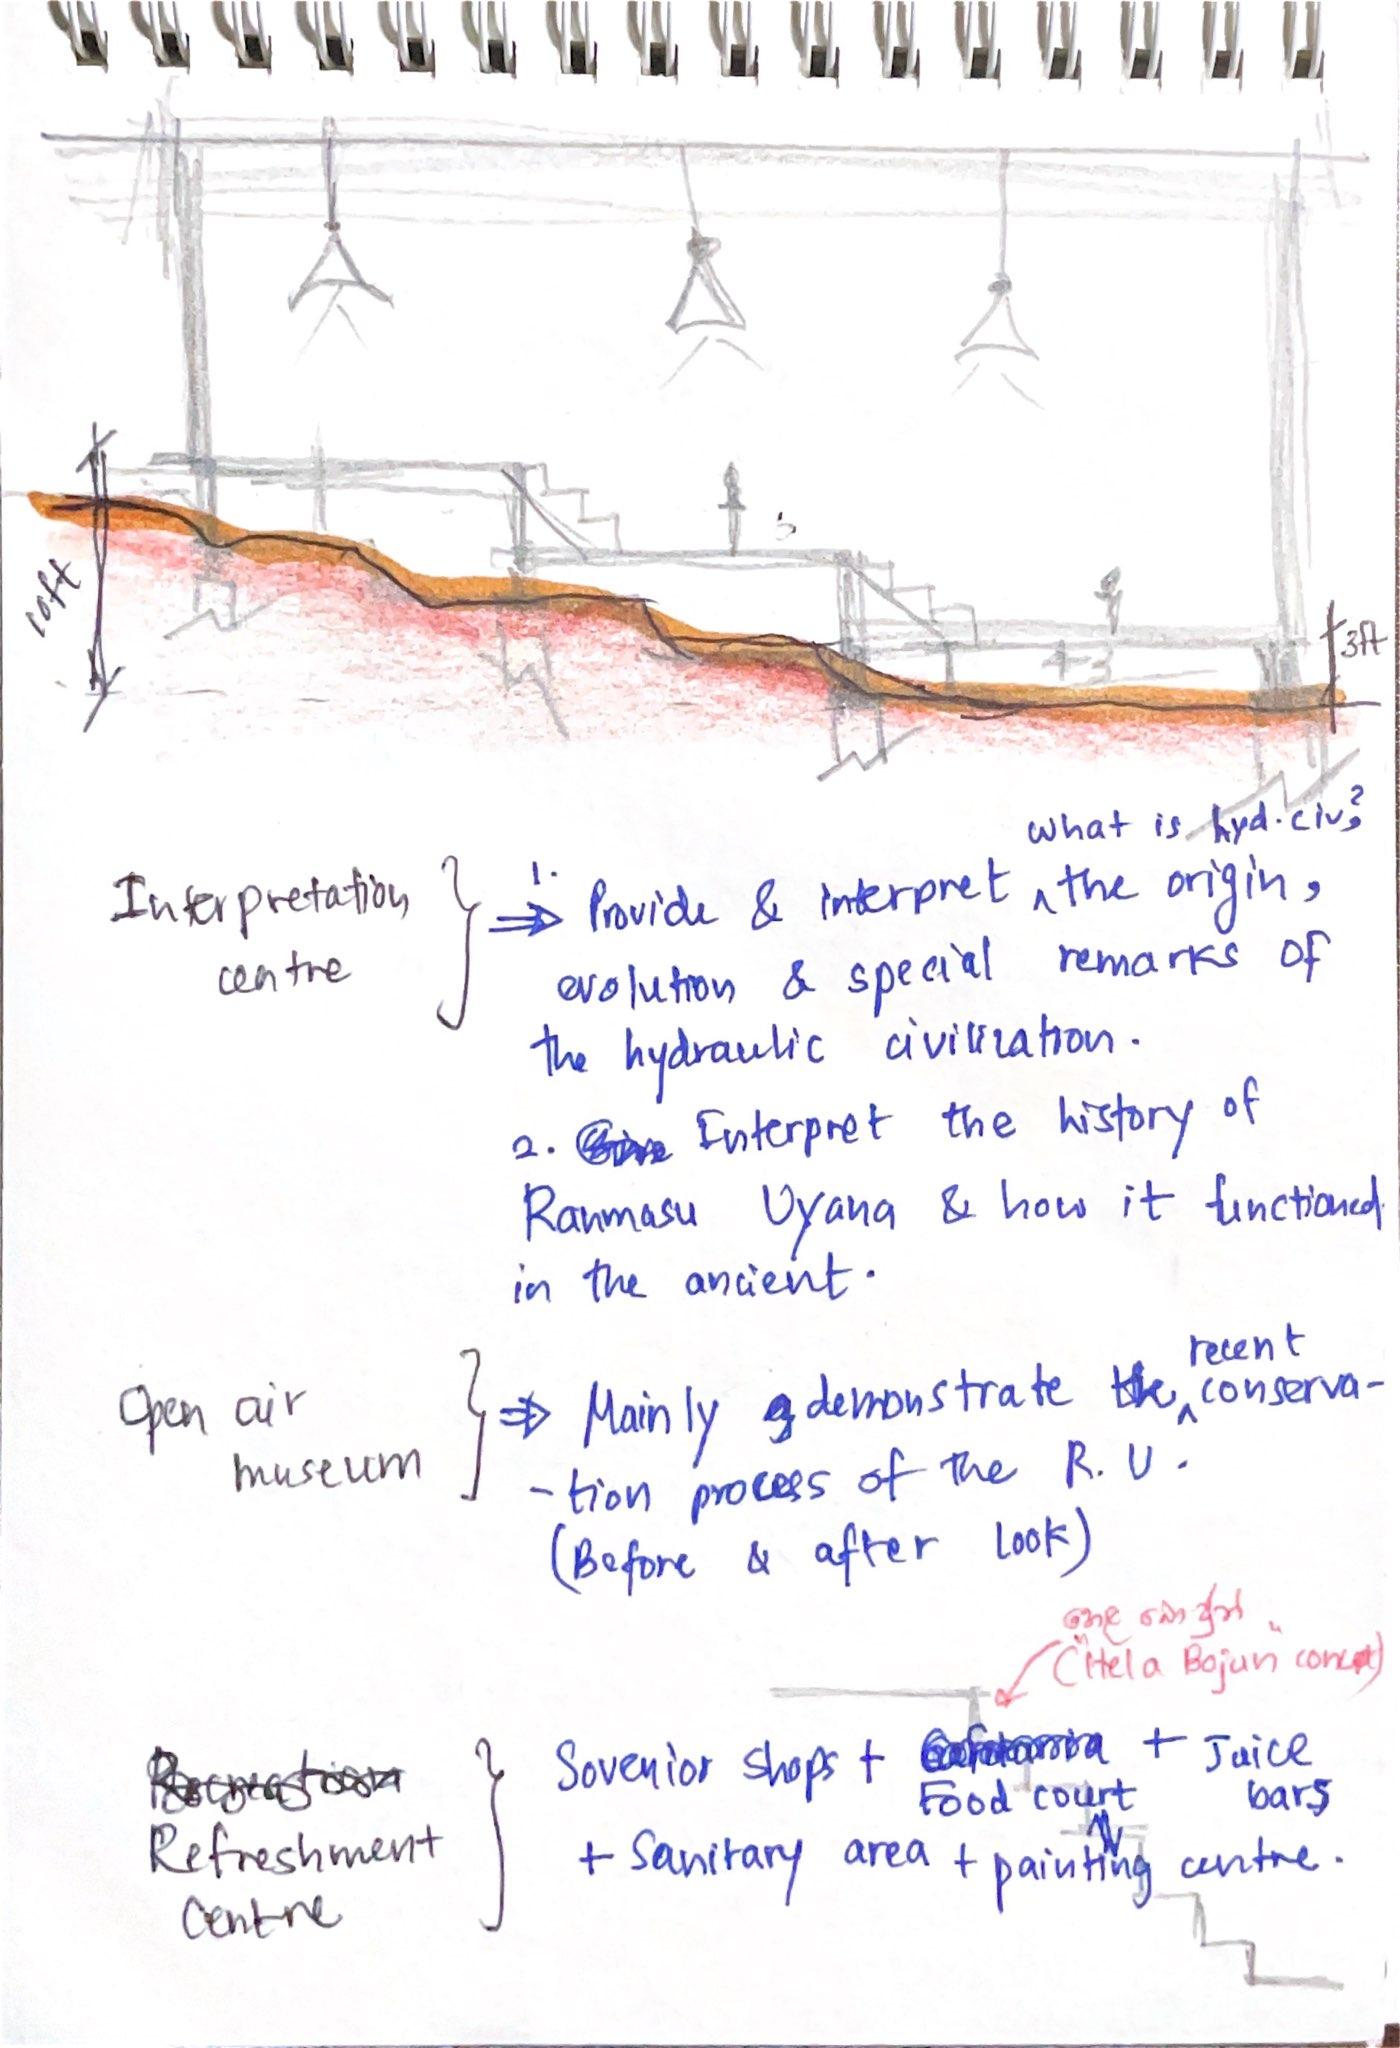 10ft
3ft
what is hyd. civ?
Interpretation
centre
1.
⇒ Provide & interpret ^ the origin,
evolution & special remarks of
the hydraulic civilization.
2. Interpret the history of
Ranmasu Uyana & how it functioned
in the ancient.
Open air
museum
recent
⇒ Mainly demonstrate the ^ conserva-
-tion process of the R.U.
(Before & after look)
හෙළ බොජුන්
("Hela Bojun" concept)
Refreshment
centre
Sovenior shops + Food court + Juice
bars
+ Sanitary area + painting centre.